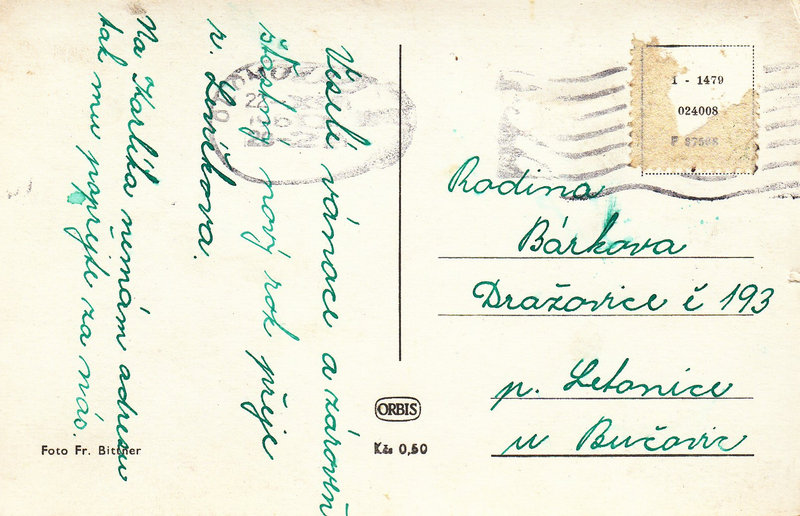 Veselé vánoce a zároveň
šťastný nový rok přeje
r. Lmíkova.
Na Karlíka nemám adresu
tak mu popřejte za nás.
1 - 1479
024008
F 87508
Rodina
Bárkova
Dražovice č 193
p. Letonice
u Bučovic
ORBIS
Kčs 0,50
Foto Fr. Bittner